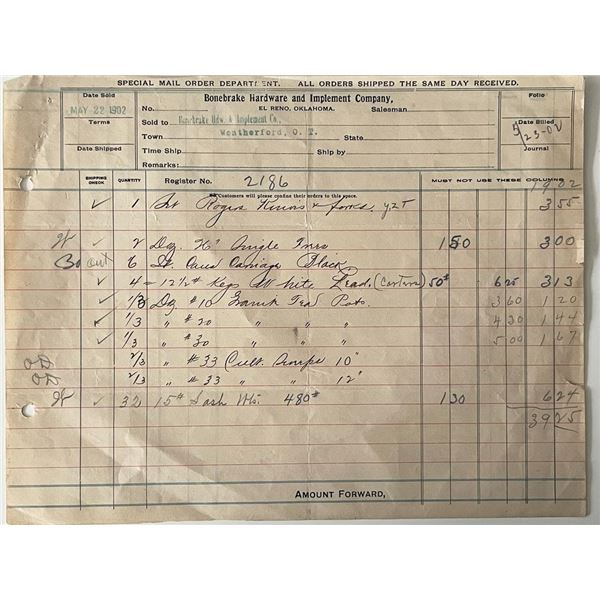 SPECIAL MAIL ORDER DEPARTMENT. ALL ORDERS SHIPPED THE SAME DAY RECEIVED.
Date Sold
MAY 22 1902
Terms
Date Shipped
Bonebrake Hardware and Implement Company,
EL RENO, OKLAHOMA.
No. Salesman
Sold to Bonebrake Hdw. & Implement Co.,
Town Weatherford, O. T. State
Time Ship Ship by
Remarks:
Folio
Date Billed
5/23-02
Journal
SHIPPING CHECK QUANTITY Register No. 2186 MUST NOT USE THESE COLUMNS
Customers will please confine their orders to this space.
1982
✓ 1 Set Rogers & forks, 355
✓ 2 Doz 150 300
out 6
✓ 4 = 12½# Kegs White Lead (Carters) 50# 625 313
✓ 1/3 Doz #10 Tea Pots. 360 120
✓ 1/3 " #20 " " " 430 144
✓ 1/3 " #30 " " " 500 167
2/3 " #33 Cult. 10"
2/3 " #33 " " 12"
✓ 32 15# Sash Wts. 480# 130 624
3925
AMOUNT FORWARD,